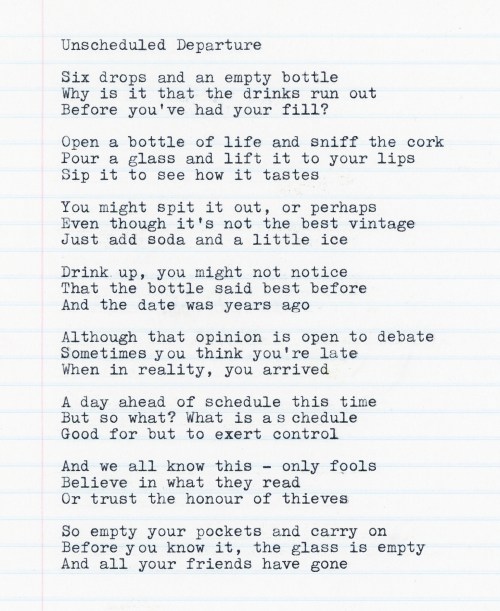 Unscheduled Departure
Six drops and an empty bottle
Why is it that the drinks run out
Before you've had your fill?
Open a bottle of life and sniff the cork
Pour a glass and lift it to your lips
Sip it to see how it tastes
You might spit it out, or perhaps
Even though it's not the best vintage
Just add soda and a little ice
Drink up, you might not notice
That the bottle said best before
And the date was years ago
Although that opinion is open to debate
Sometimes you think you're late
When in reality, you arrived
A day ahead of schedule this time
But so what? What is a s chedule
Good for but to exert control
And we all know this - only fools
Believe in what they read
Or trust the honour of thieves
So empty your pockets and carry on
Before you know it, the glass is empty
And all your friends have gone